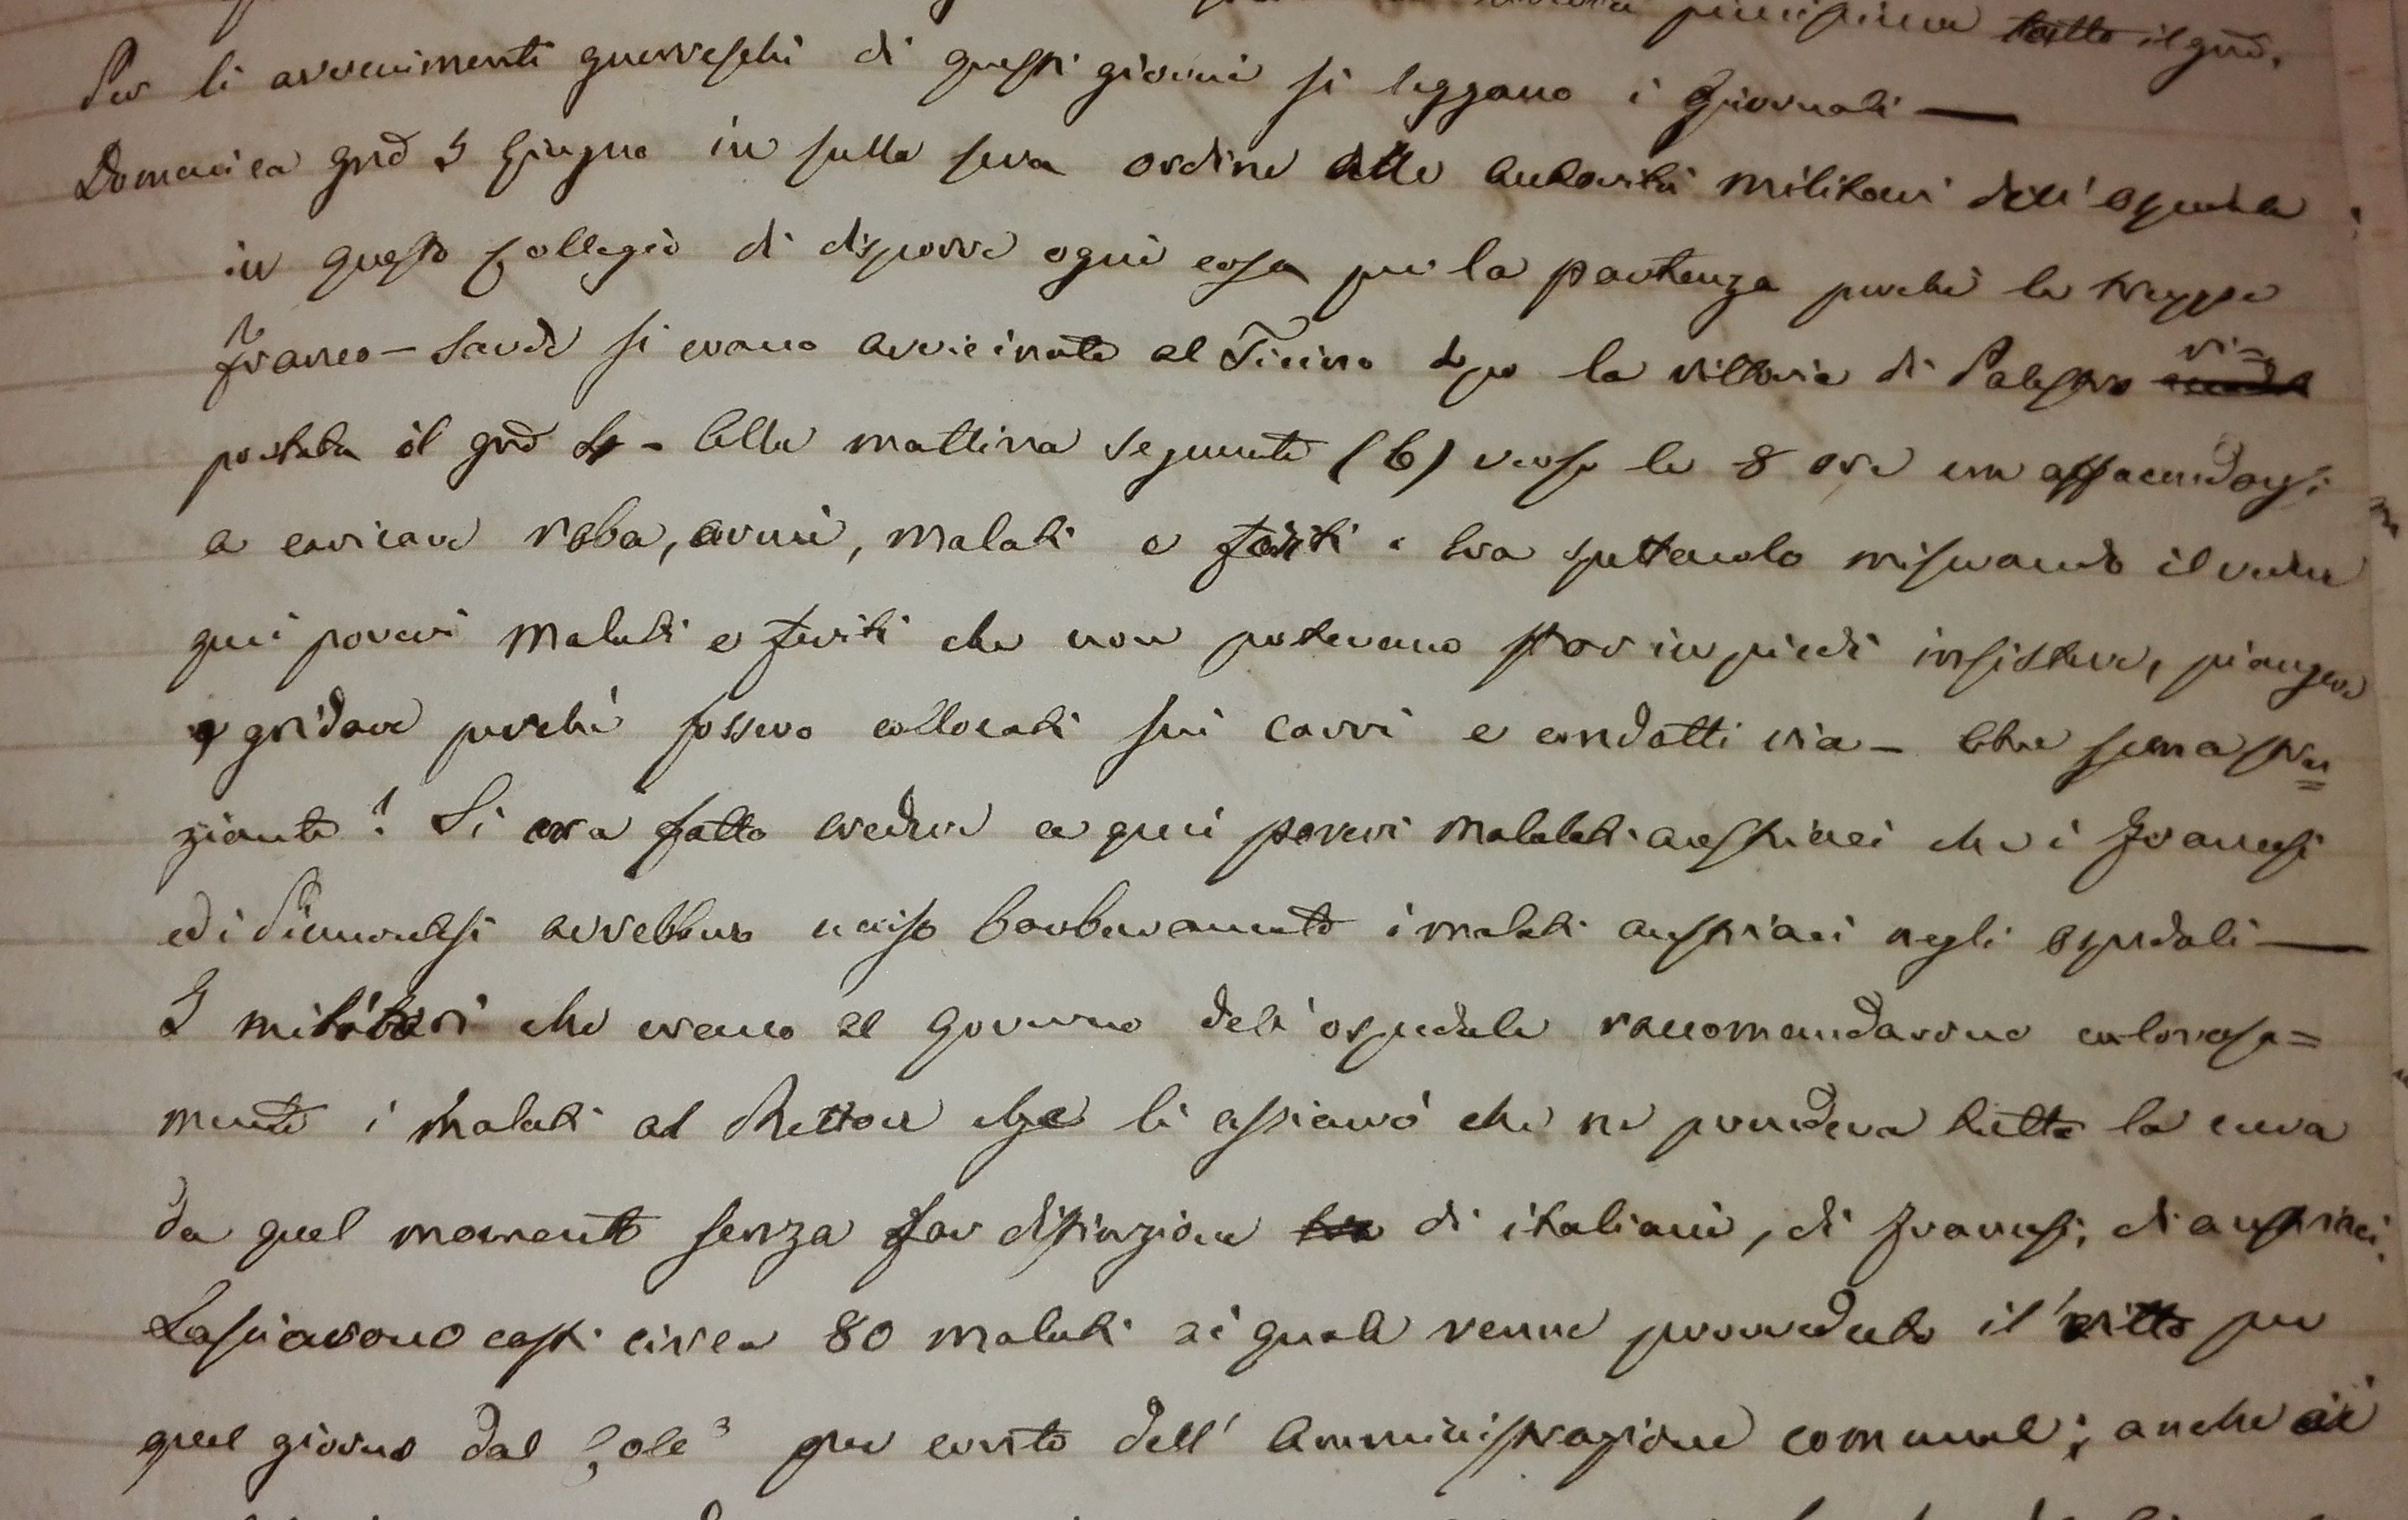 tutto il gno.
Per li avvenimenti guerreschi di questi giorni si leggano i Giornali —
Domenica gno 5 Giugno in sulla sera ordine alle autorità militari dell'ospedale
in questo Collegio di disporre ogni cosa per la partenza perchè le truppe
franco-sarde si erano avvicinate al Ticino dopo la vittoria di Palestro ri=
portata il gno 4 - Alla mattina seguente (6) verso le 8 ore un affacendarsi
a caricare roba, armi, malati e feriti. Era spettacolo miserando il veder
quei poveri malati e feriti che non potevano star in piedi insistere, piangere
e gridare perchè fossero collocati sui carri e condotti via - Che scena stra=
ziante! Si era fatto credere a quei poveri malati austriaci che i Francesi
ed i Piemontesi avrebbero ucciso barbaramente i malati austriaci negli ospedali —
I militari che erano al governo dell'ospedale raccomandarono calorosa=
mente i malati al Rettore che li assicurò che ne prendeva tutta la cura
da quel momento senza far distinzione di italiani, di francesi, di austriaci.
Lasciarono costì circa 80 malati ai quali venne provveduto il vitto per
quel giorno dal Coleo per conto dell'Amministrazione comunale; anche ai